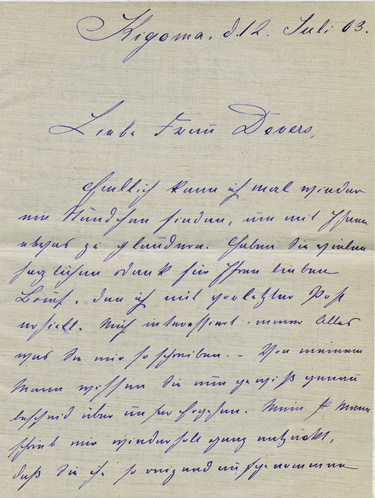 Kigoma, d. 12. Juli 03.
Liebe Frau Devers,
Endlich kann ich mal wieder
ein Stündchen finden, um mit Ihnen
etwas zu plaudern. Haben Sie vielen
herzlichen Dank für Ihren lieben
Brief, den ich mit vorletzter Post
erhielt. Mich interessiert immer Alles
was Sie mir so schreiben. - Von meinem
Mann wissen Sie nun gewiß genau
bescheid über unser Ergehen. Mein Mann
schrieb mir wiederholt ganz entzückt,
daß Sie ihn so reizend aufgenommen